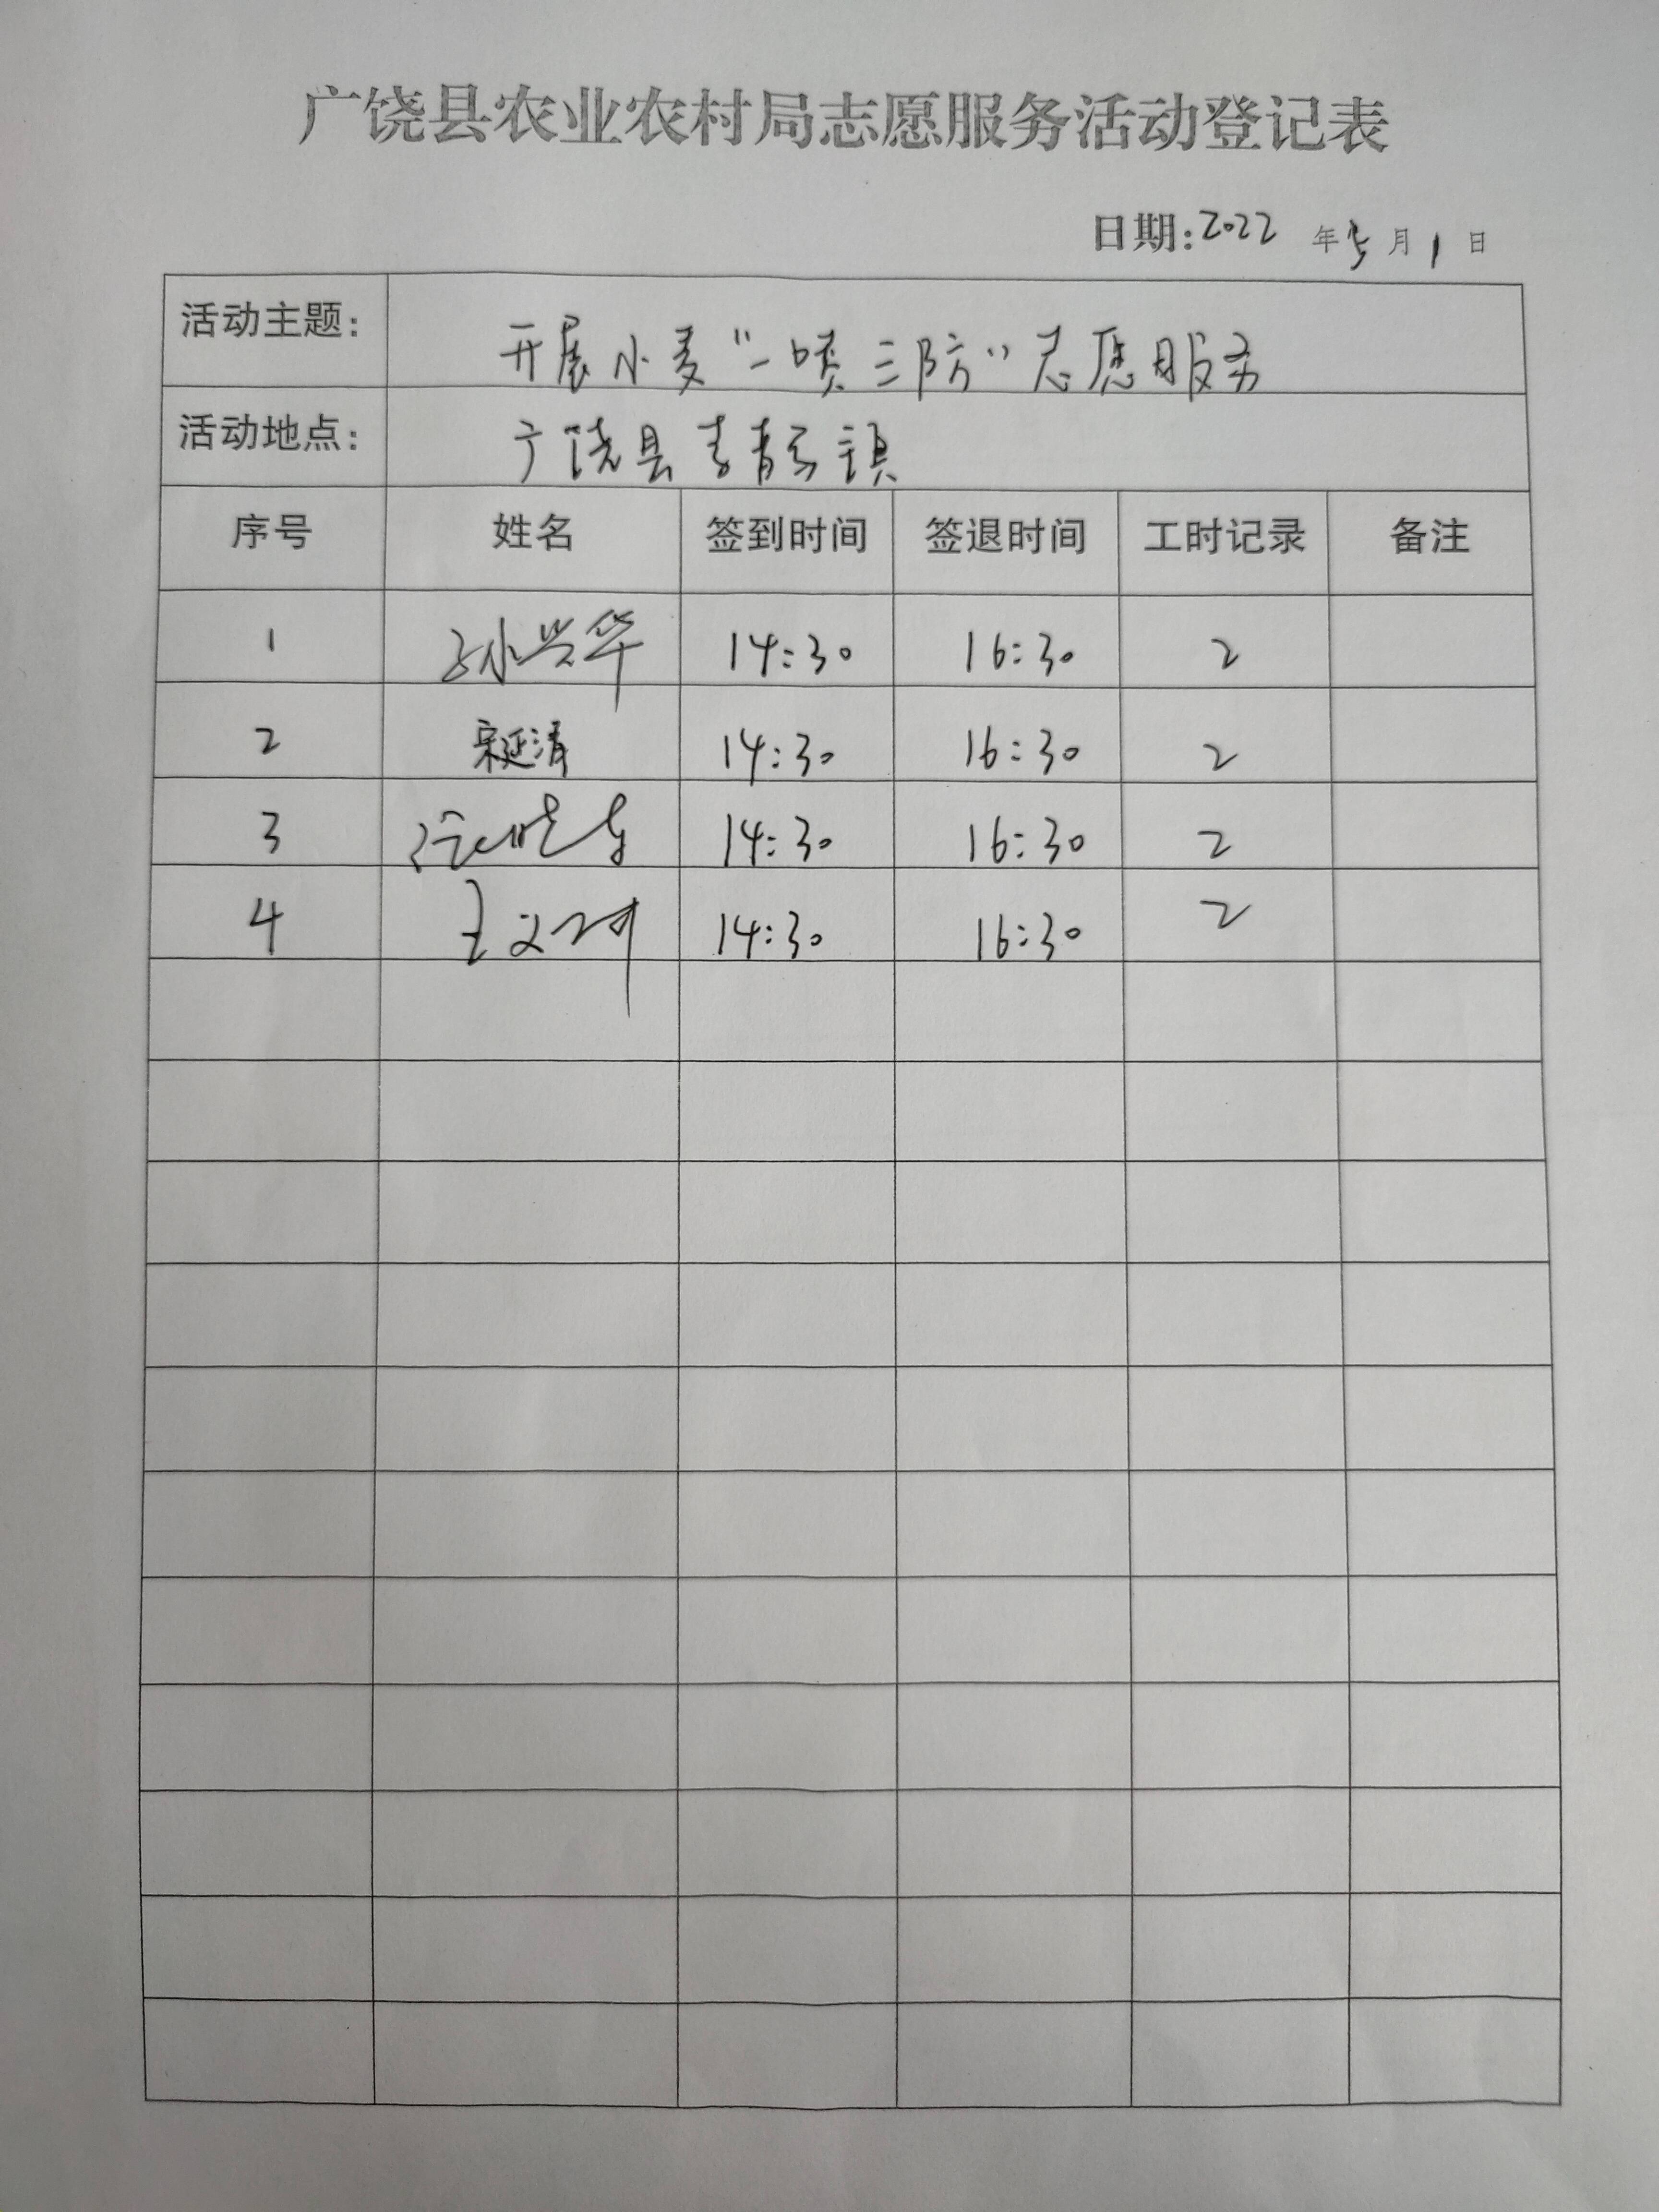 广饶县农业农村局志愿服务活动登记表
日期:2022 年 5 月 1 日
活动主题: 开展小麦“一喷三防”志愿服务
活动地点: 广饶县 镇
序号 姓名 签到时间 签退时间 工时记录 备注
1 孙兴华 14:30 16:30 2
2 宋延清 14:30 16:30 2
3 14:30 16:30 2
4 王 14:30 16:30 2